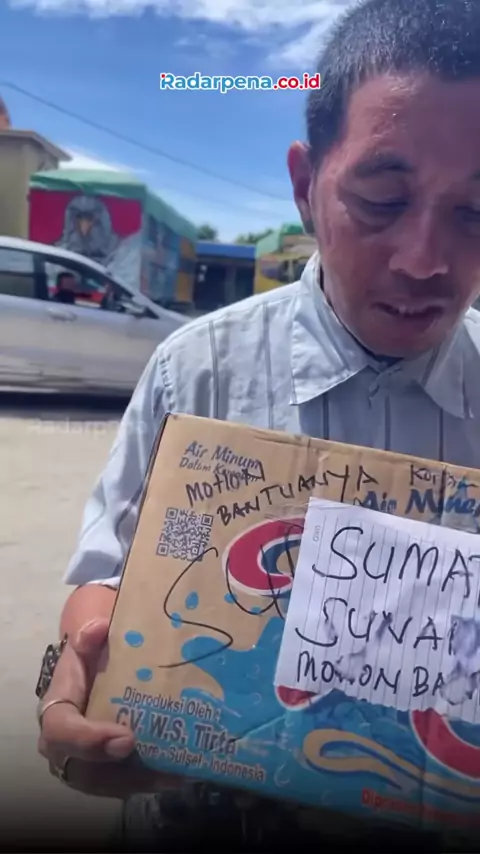 Radarpena.co.id
Radarpena
Air Minum
Dalam
MOHON
BANTUANYA
Air Minum
SU
SUMAT
SUNA
MOHON BA
Diproduksi Oleh :
CV. W.S. Tirta
Sulsel - Indonesia